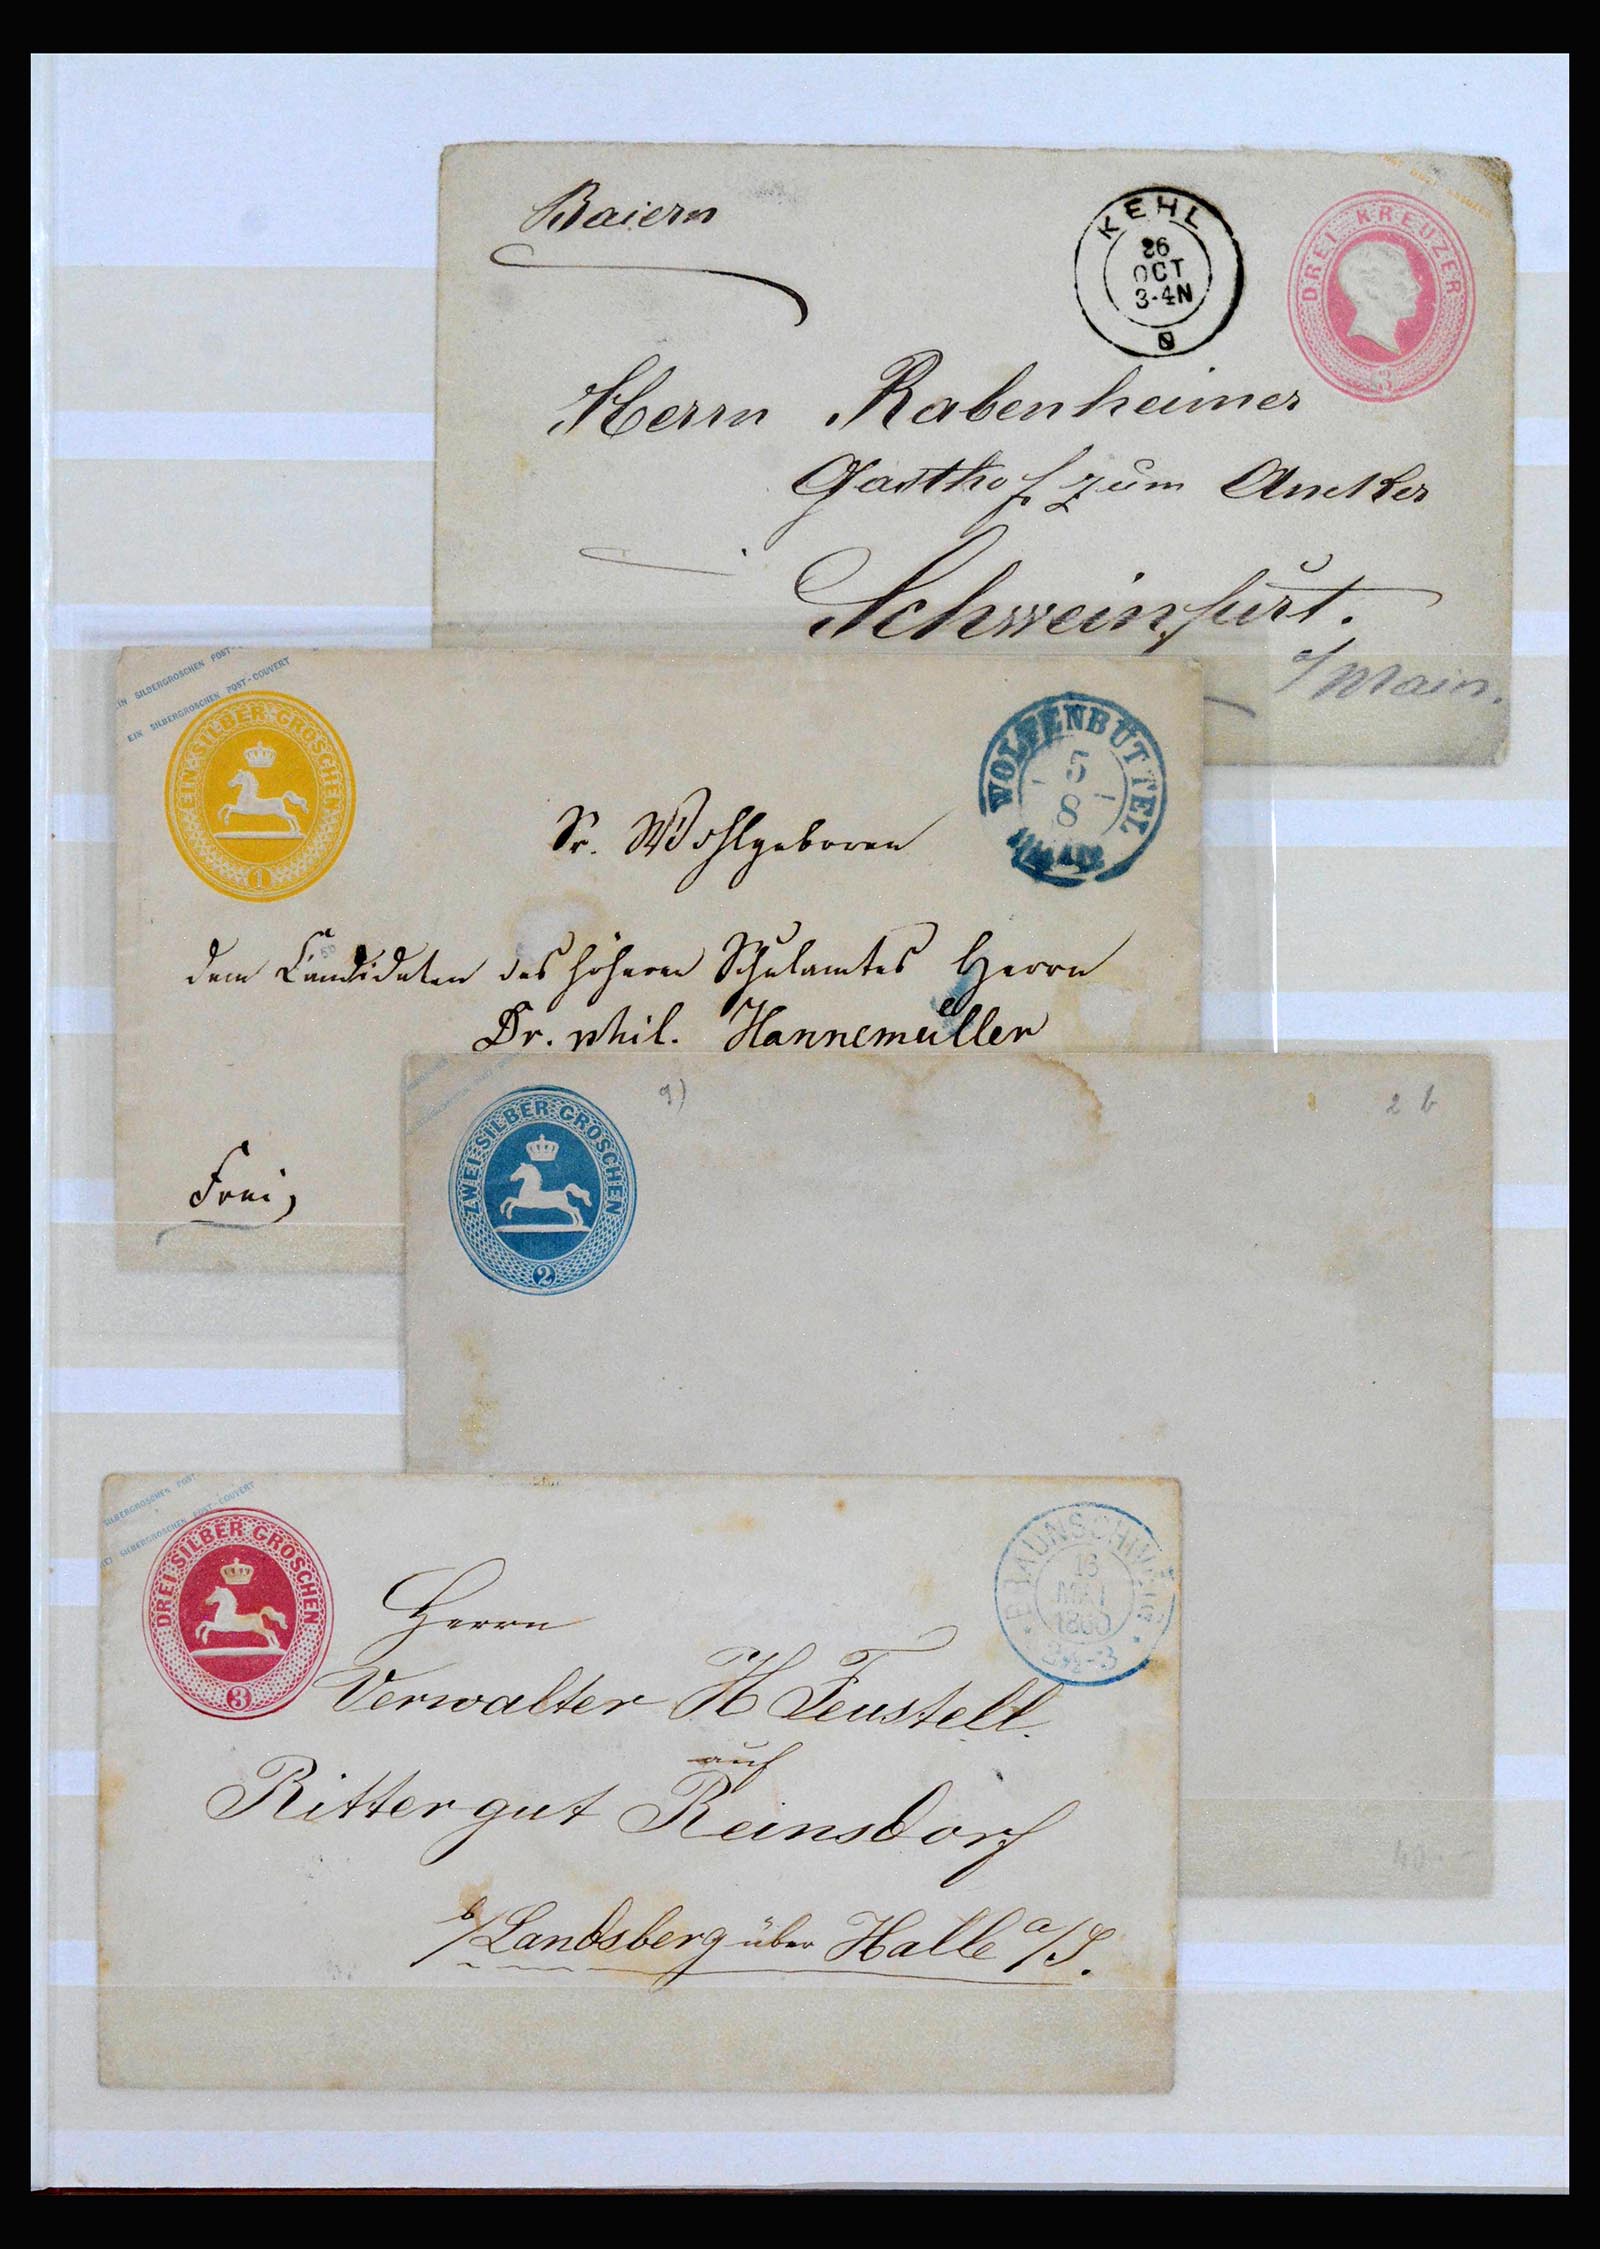 Baiern
KEHL
26
OCT
3-4N
DREI KREUZER
3
Herrn Rabenheimer
Gasthof zum Ancker
Schweinfurt.
a/Main.
EIN SILBERGROSCHEN POST-
EIN SILBERGROSCHEN POST-COUVERT
EIN SILBER GROSCHEN
1
WOLFENBÜTTEL
5
8
Sr. Wohlgeboren
dem Candidaten des höheren Schulamtes Herrn
Dr. phil. Hannemüller
Frei,
ZWEI SILBER GROSCHEN
2
9)
2 b
40.-
SILBERGROSCHEN POST-
SILBERGROSCHEN POST-COUVERT
DREI SILBER GROSCHEN
3
BRAUNSCHWEIG
16
MAI
1860
2½-3
Herrn
Verwalter H Feustell.
auf
Rittergut Reinsdorf
b/Landsberg über Halle a/S.